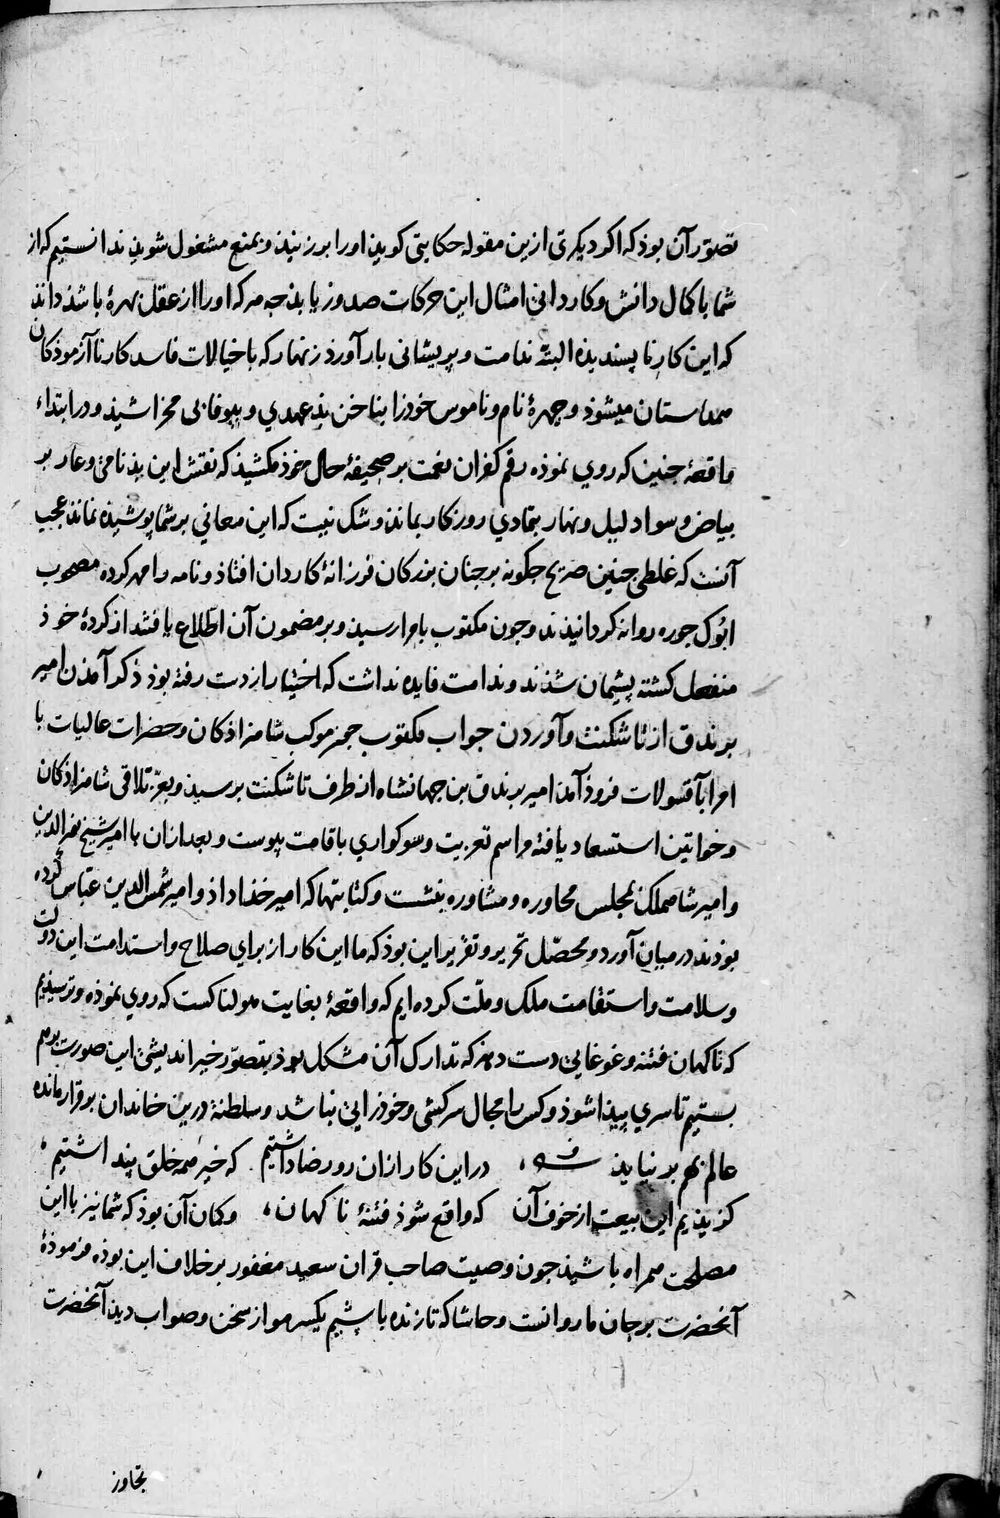 تصوّر آن بوذ که اکر دیکری ازین مقوله حکایتی کویذ او را برزنید و بمنع مشغول شوید ندانستیم که از
شما با کمال دانش و کاردانی امثال این حرکات صدور یابذ جه هر که او را از عقل بهرۀ باشذ داند
که این کار ناپسندیذه البتّه ندامت و پریشانی بار آورد زنهار که با خیالات فاسد کار ناآزموذکان
همداستان میشوذ و چهرۀ نام و ناموس خوذ را بناخن بذعهدی و بیوفایی مخراشیذ و در ابتداء
واقعۀ جنین که روی نموذه رقم کفران نعمت بر صحیفۀ حال خوذ مکشیذ که نقش این بذنامی و عار بر
بیاض و سواد لیل و نهار بتمادی روزکار بماند و شک نیست که این معانی بر شما پوشیذه نماند عجب
آنست که غلطی جنین صریح جکونه بر جنان بزرکان فرزانۀ کاردان افتاذ و نامه را مهر کرده مصحوب
ابوک جوره روانه کردانیذند و جون مکتوب بامرا رسیذ و بر مضمون آن اطّلاع یافتند از کردۀ خوذ
منفعل کشته پشیمان شذند و ندامت فایده نداشت که اختیار از دست رفته بوذ ذکر آمذن امیر
برندق از تاشکنت و آوردن جواب مکتوب جمز موکب شاهزاذکان و حضرات عالیات با
امرا بآقسولات فروذ آمد امیر برندق بن جهانشاه از طرف تاشکنت برسیذ و بعزّ تلاقی شاهزاذکان
و خواتین استسعاد یافته مراسم تعزیت و سوکواری باقامت پیوست و بعد ازان با امیر شیخ نورالدین
و امیر شاهملک بمجلس محاوره و مشاوره بنشست و کتابتها که امیر خذاداذ و امیر شمس الدین عبّاس کرده
بوذند در میان آورد و محصّل تحریر و تقریر این بوذ که ما این کار از برای صلاح و استدامت این دولت
و سلامت و استقامت ملک و ملّت کرده ایم که واقعۀ بغایت هولناکست که روی نموذه و ترسیذیم
که ناکهان فتنه و غوغایی دست دهذ که تدارک آن مشکل بوذ بتصوّر خیر اندیشی این صورت بر هم
بستیم تا سری پیذا شوذ و کس را مجال سرکشی و خوذرایی نباشد و سلطنة درین خاندان برقرار مانده
عالم بهم بر نیایذ شعر در این کار ازان رو رضا داشتیم که خیر همه خلق پنداشتیم
کزیذیم این بیعت از خوف آن که واقع شوذ فتنۀ ناکهان و کمان آن بوذ که شما نیز با این
مصلحت همراه باشیذ جون وصیت صاحب قران سعید مغفور بر خلاف این بوذه فرموذۀ
آنحضرت بر جان ما روانست و حاشا که تا زنده باشیم یکسر مو از سخن و صواب دید آنحضرت
تجاوز